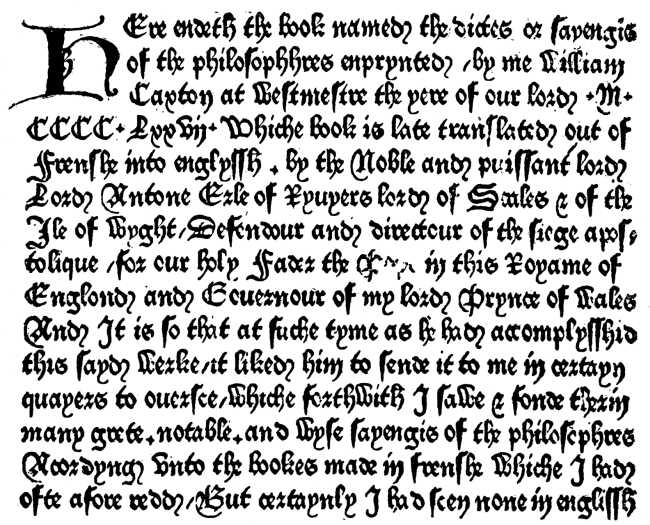 Here endeth the book named the dictes or sayengis
of the philosophhres enprynted, by me William
Caxton at Westmestre the yere of our lord ·M·
CCCC·Lxxvij· Whiche book is late translated out of
Frenshe into englyssh. by the Noble and puissant lord
Lord Antone Erle of Ryuyers lord of Scales & of the
Ile of Wyght, Defendour and directour of the siege apos-
tolique, for our holy Fader the Pope in this Royame of
Englond and Gouernour of my lord Prynce of Wales
And It is so that at suche tyme as he had accomplysshid
this sayd werke, it liked him to sende it to me in certayn
quayers to ouersee, whiche forthwith I sawe & fonde therin
many grete, notable, and wyse sayengis of the philosophres
Acordyng vnto the bookes made in frenshe whiche I had
ofte afore redd, But certaynly I had seen none in englissh